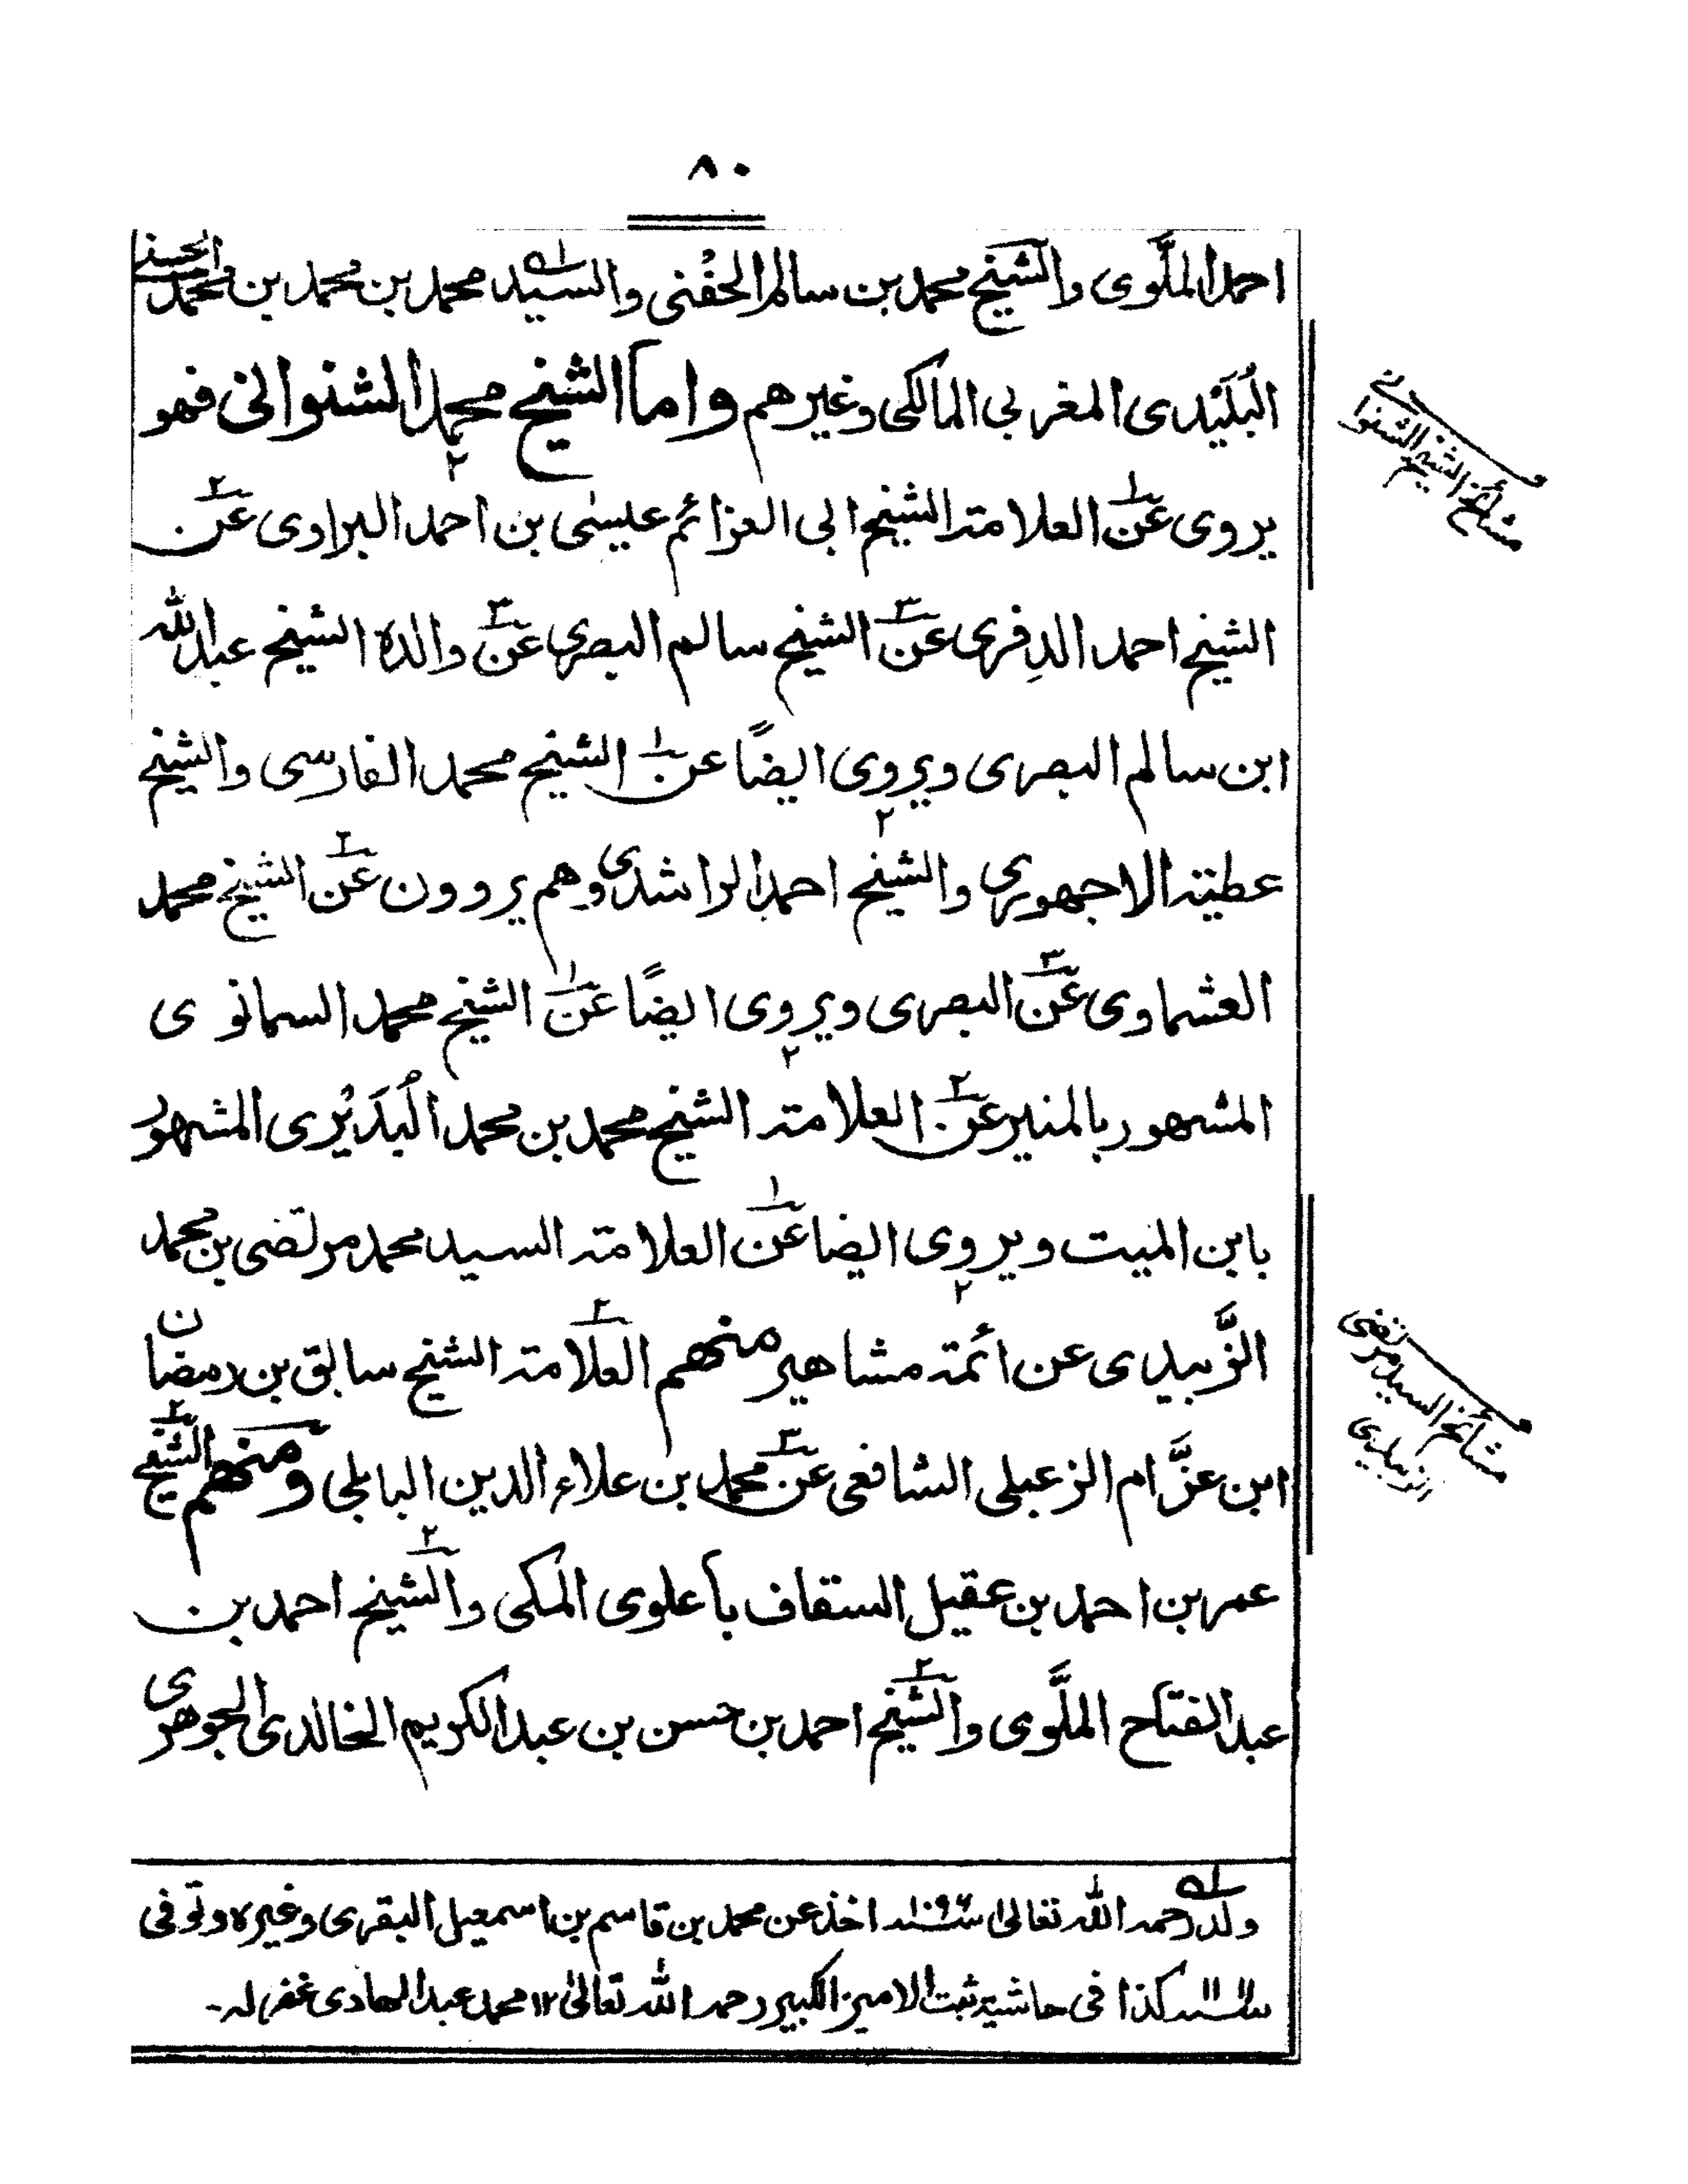 ٨٠
احمد الملَّوى والشيخ محمد بن سالم الحفْنى والسيد محمد بن محمد بن محمد الحسنى
البُلَيْدى المغربى المالكى وغيرهم واما الشيخ محمد الشنوانى فهو
يروى عن العلامة الشيخ ابى العزائم عيسٰى بن احمد البراوى عن
الشيخ احمد الدِفرى عن الشيخ سالم البصرى عن والده الشيخ عبدالله
ابن سالم البصرى ويروى ايضًا عن الشيخ محمد الفارسى والشيخ
عطية الاجهورى والشيخ احمد الراشدى وهم يروون عن الشيخ محمد
العشماوى عن البصرى ويروى ايضًا عن الشيخ محمد السمانوى
المشهور بالمنير عن العلامة الشيخ محمد بن محمد البُدَيْرى المشهور
بابن الميت ويروى ايضا عن العلامة السيد محمد مرتضى بن محمد
الزَّبيدى عن ائمة مشاهير منهم العلامة الشيخ سابق بن رمضان
ابن عزَّام الزعبلى الشافعى عن محمد بن علاء الدين البابلى ومنهم الشيخ
عمر بن احمد بن عقيل السقاف باعلوى المكى والشيخ احمد بن
عبد الفتاح الملَّوى والشيخ احمد بن حسن بن عبد الكريم الخالدى الجوهرى
مشائخ الشيخ الشنوانى
مشائخ السيد مرتضى
الزبيدى
ولد رحمه الله تعالىٰ سنة ١٠٩٦ اخذ عن محمد بن قاسم بن اسمعيل البقرى وغيره وتوفى
سنة كذا فى حاشية ثبت الامير الكبير رحمه الله تعالىٰ ١٢ محمد عبد الهادى غفر له-